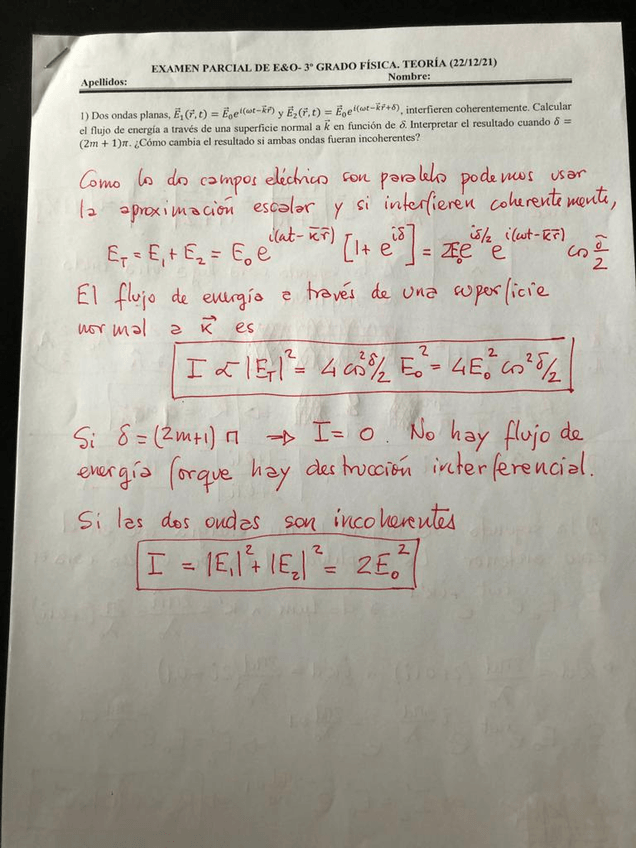 EXAMEN PARCIAL DE E&O- 3º GRADO FÍSICA. TEORÍA (22/12/21)
Apellidos: Nombre:
1) Dos ondas planas, E⃗₁(r⃗, t) = E⃗₀e^{i(ωt−k⃗r⃗)} y E⃗₂(r⃗, t) = E⃗₀e^{i(ωt−k⃗r⃗+δ)}, interfieren coherentemente. Calcular
el flujo de energía a través de una superficie normal a k⃗ en función de δ. Interpretar el resultado cuando δ =
(2m + 1)π. ¿Cómo cambia el resultado si ambas ondas fueran incoherentes?
Como los dos campos eléctricos son paralelos podemos usar
la aproximación escalar y si interfieren coherentemente,
E_T = E₁ + E₂ = E₀ e^{i(ωt−k̄r̄)} [1 + e^{iδ}] = 2E₀ e^{iδ/2} e^{i(ωt−k̄r̄)} cos δ/2
El flujo de energía a través de una superficie
normal a k⃗ es
I ∝ |E_T|² = 4 cos² δ/2 E₀² = 4E₀² cos² δ/2
Si δ = (2m+1) π → I = 0. No hay flujo de
energía porque hay destrucción interferencial.
Si las dos ondas son incoherentes
I = |E₁|² + |E₂|² = 2E₀²